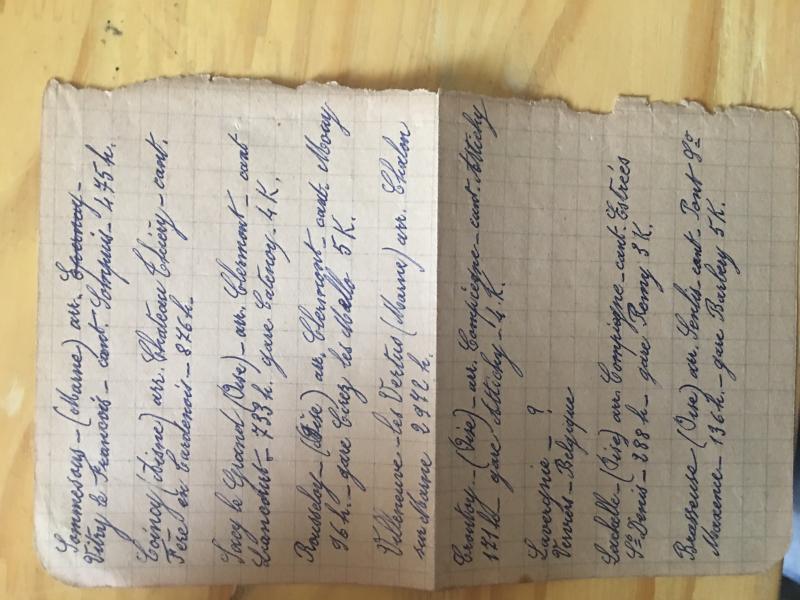 Sommesous - (Marne) arr. Epernay -
Vitry le François - cant. Sompuis - 475 h.
Coincy (Aisne) arr. Chateau Thierry - cant.
Fère en Tardenois - 876 h -
Sacy le Grand (Oise) - arr. Clermont - cant
Liancourt - 733 h. gare Catenoy - 4 K.
Rousseloy - (Oise) arr. Clermont - cant. Mouy
96 h. - gare Cirez les Mello 5 K.
Villeneuve - les Vertus (Marne) arr. Chalon
sur Marne 2942 h.
Croutoy - (Oise) - arr. Compiègne - cant. Attichy
171 h - gare Attichy - 4 K.
Lavergnie - ?
Verviers - Belgique
(Oise) arr. Compiègne - cant. Estrées
St Denis - 288 h - gare Remy 3 K.
Brasseuse (Oise) arr. Senlis cant. Pont Ste
Maxence - 136 h. - gare Barbery 5 K.